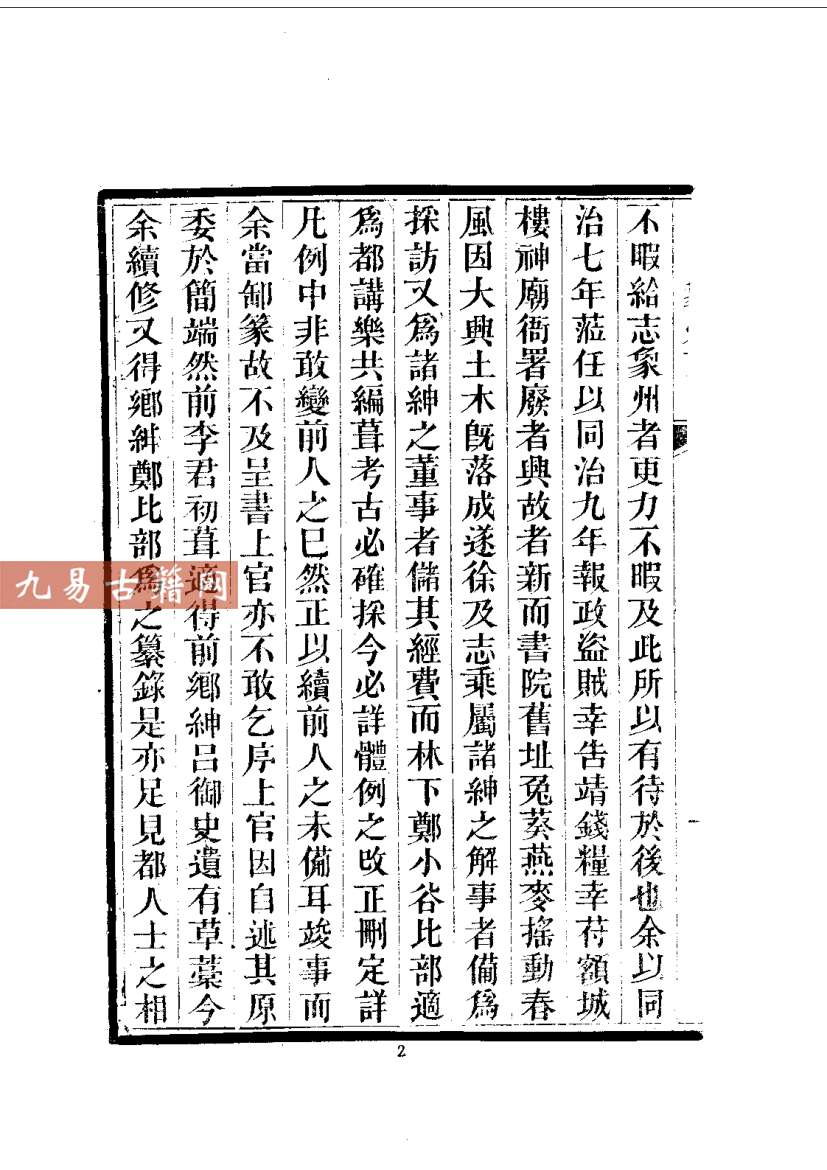 不暇給志象州者更力不暇及此所以有待於後也余以同
治七年蒞任以同治九年報政盜賊幸告靖錢糧幸苻額城
樓神廟衙署廢者興故者新而書院舊址兔葵燕麥搖動春
風因大興土木旣落成遂徐及志乘屬諸紳之解事者備爲
採訪又爲諸紳之董事者儲其經費而林下鄭小谷比部適
爲都講樂共編葺考古必確採今必詳體例之改正刪定詳
凡例中非敢變前人之已然正以續前人之未備耳竣事而
余當卸篆故不及呈書上官亦不敢乞序上官因自述其原
委於簡端然前李君初葺適得前鄕紳呂御史遺有草藁今
余續修又得鄕紳鄭比部爲之纂錄是亦足見都人士之相
2
九易古籍网